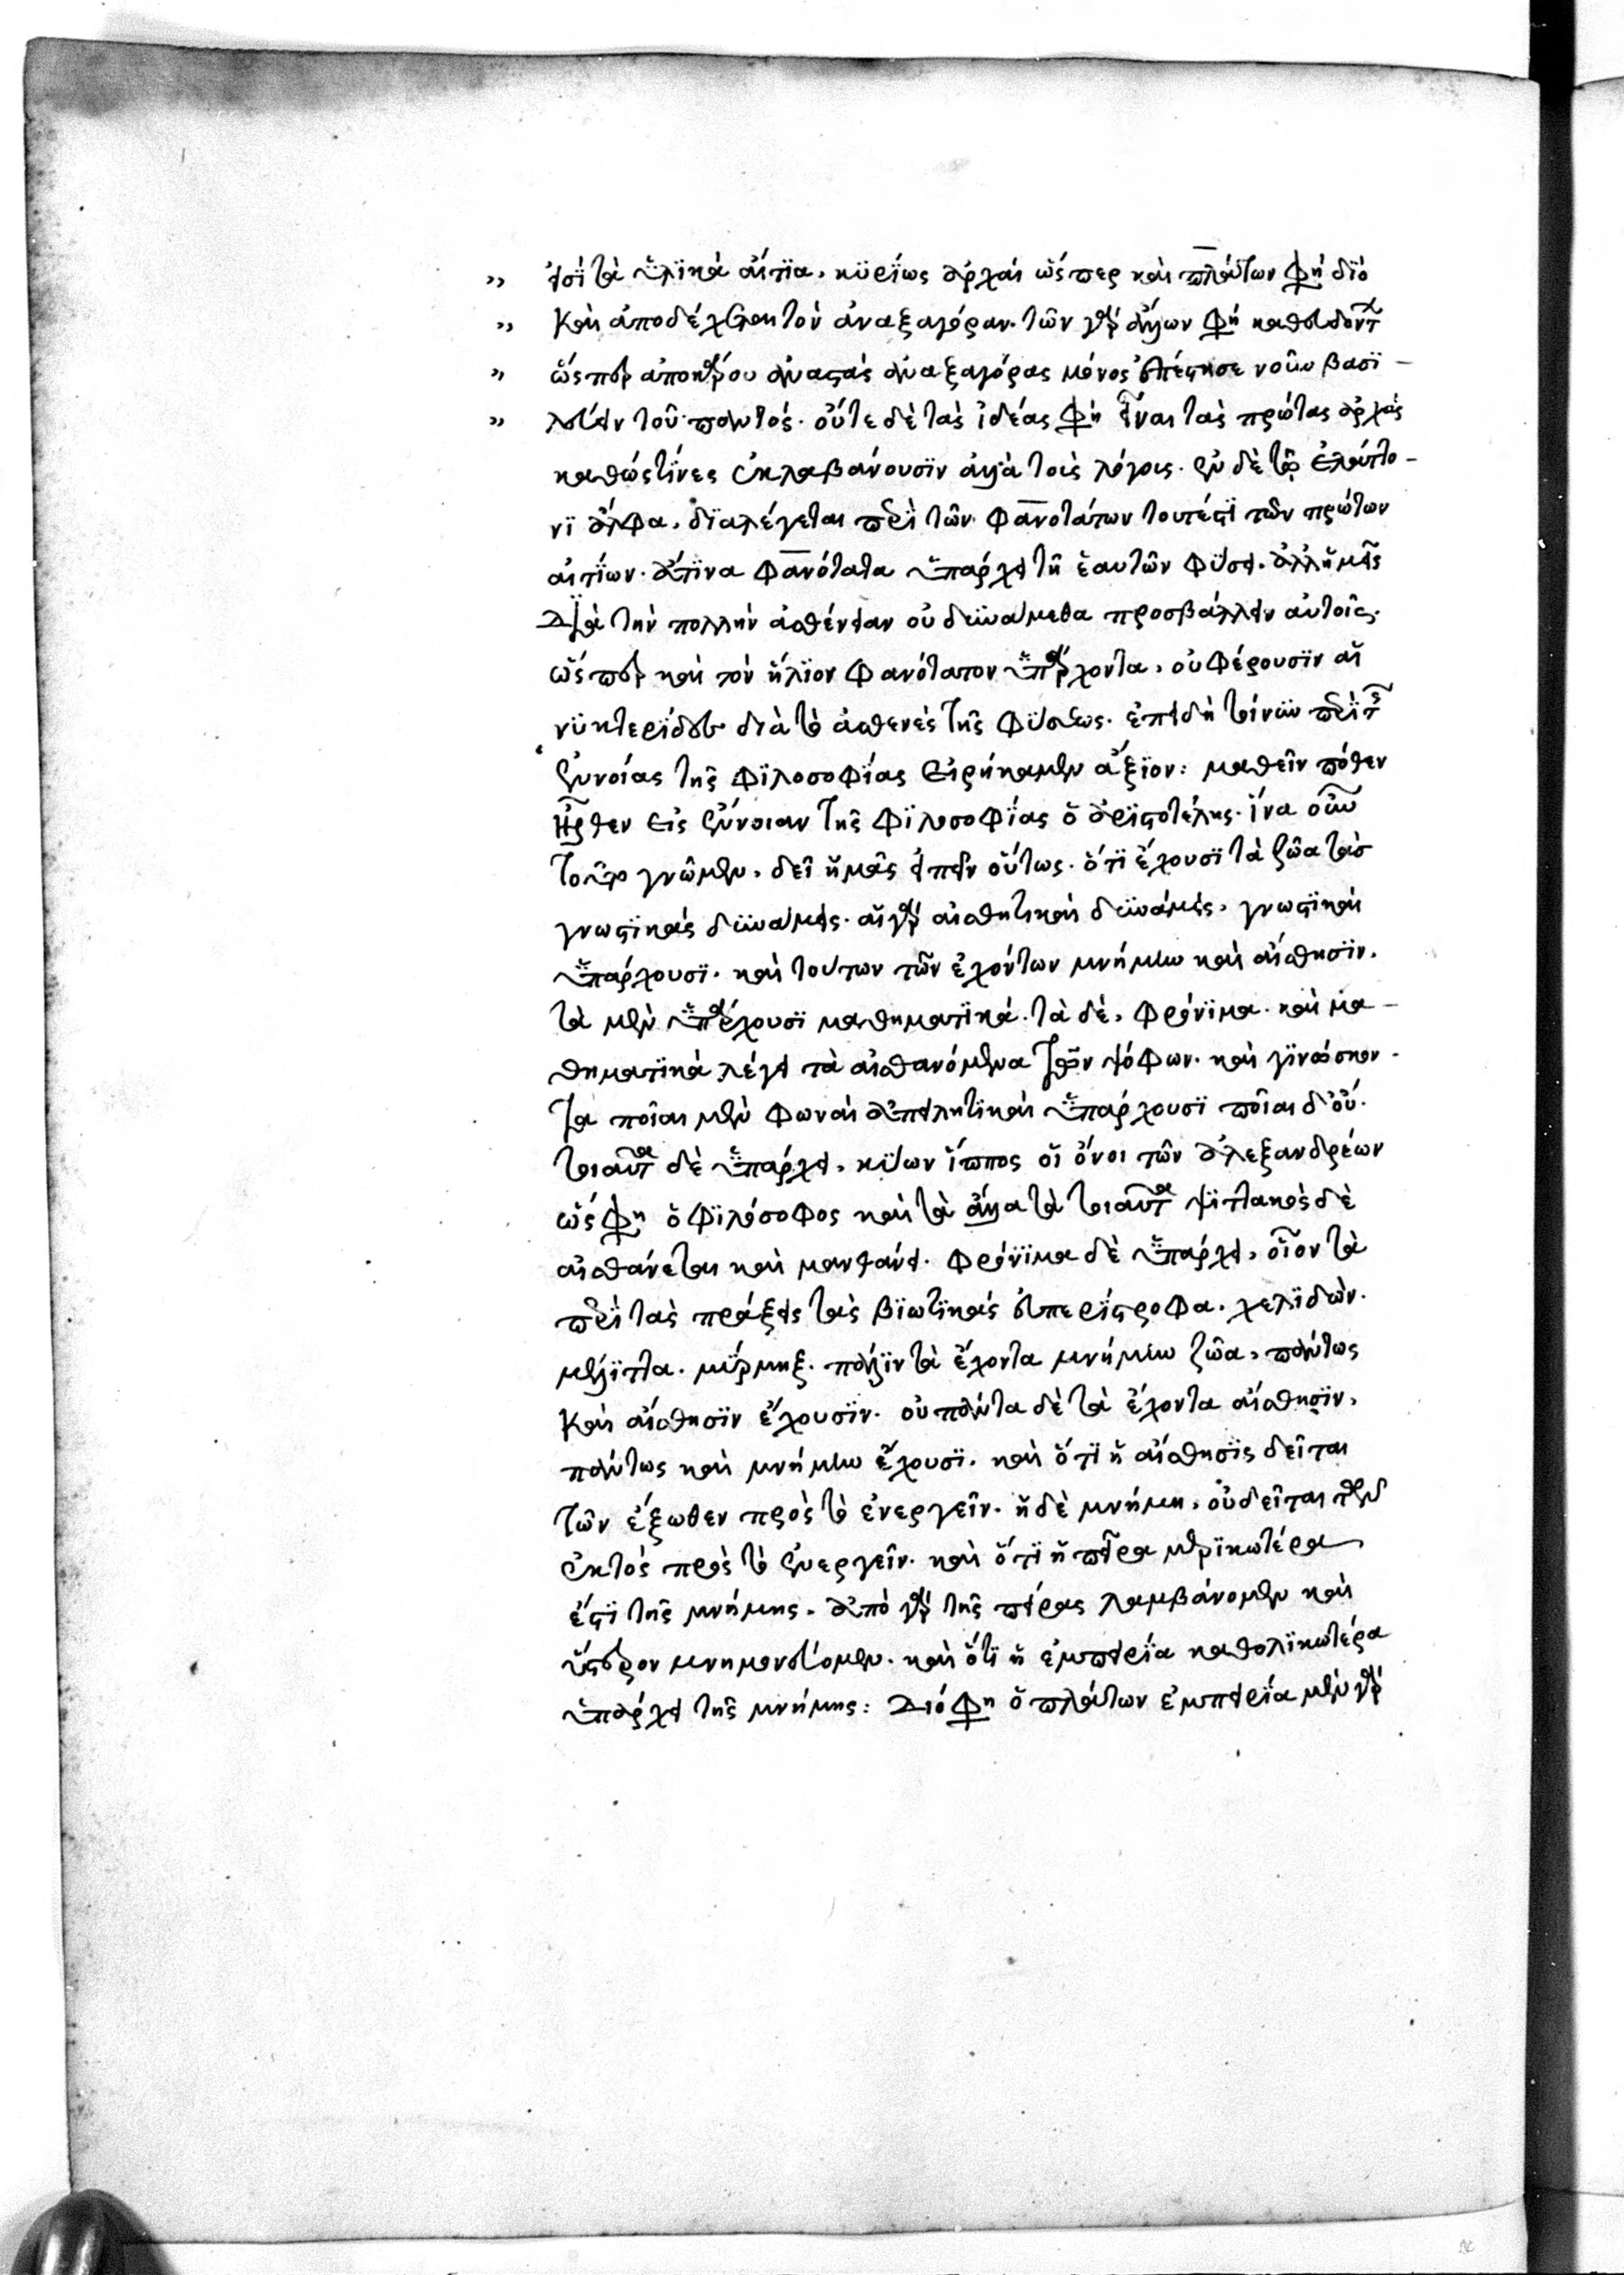 εἰσὶ τὰ ὑλϊκὰ αἴτϊα. κϋρΐως ἀρχαὶ ὥσπερ καὶ πλάτων φη διὸ
Καὶ ἀποδέχεται τὸν ἀναξαγόραν. τῶν γὰρ ἄλλων φη καθευδόντ
ὥσπερ ἀπο κάρου ἀναστὰς ἀναξαγόρας μόνος ἐπέστησε νοῦν βασϊ-
λεύειν τοῦ παντός. οὔτε δὲ τὰς ἰδέας φη εἶναι τὰς πρώτας ἀρχὰς
καθώς τινες ἐκλαβάνουσϊν ἀλλὰ τοὺς λόγους. ἐν δὲ τῷ ἐλάττο-
νϊ ἄλφα. δϊαλέγεται περὶ τῶν φανοτάτων τουτέστϊ τῶν πρώτων
αἰτΐων. ἅτινα φανότατα ὑπάρχει τῆ ἑαυτῶν φύσει. ἀλλ ἡμεῖς
Διὰ τὴν πολλὴν ἀσθένειαν οὐ δυνάμεθα προσβάλλειν αὐτοῖς.
ὥσπερ καὶ τὸν ἥλϊον φανότατον ὑπάρχοντα. οὐ φέρουσϊν αἱ
νϋκτερΐδες διὰ τὸ ἀσθενὲς τῆς φύσεως. ἐπειδὴ τοίνυν περὶ τῆς
ἐννοίας τῆς φϊλοσοφΐας εἰρήκαμεν ἄξϊον: μαθεῖν πόθεν
Ἦρθεν εἰς ἔννοιαν τῆς φϊλοσοφΐας ὁ ἀρϊστοτέλης. ἵνα οὖν
τοῦτο γνῶμεν. δεῖ ἡμᾶς εἰπεῖν οὕτως. ὅτϊ ἔχουσϊ τὰ ζῶα τὰς
γνωστϊκὰς δυνάμεις. αἱ γὰρ αἰσθητικαὶ δυνάμεις. γνωστϊκαὶ
ὑπάρχουσϊ. καὶ τούτων τῶν ἐχόντων μνήμην καὶ αἴσθησϊν.
τὰ μὲν ὑπάρχουσϊ μαθηματϊκά. τὰ δὲ. φρόνϊμα. καὶ μα-
θηματϊκὰ λέγει τὰ αἰσθανόμενα τῶν ψόφων. καὶ γϊνώσκον-
τα ποῖαι μὲν φωναὶ ἀπειλητϊκαὶ ὑπάρχουσϊ ποῖαι δ' οὔ.
τοιαῦτα δὲ ὑπάρχει. κύων ἵππος οἱ ὄνοι τῶν ἀλεξανδρέων
ὥς φη ὁ φϊλόσοφος καὶ τὰ ἄλλα τὰ τοιαῦτα ψϊττακὸς δὲ
αἰσθάνεται καὶ μανθάνει. φρόνϊμα δὲ ὑπάρχει. οἷον τὰ
περὶ τὰς πράξεις τὰς βϊωτϊκὰς εὐπερΐστροφα. χελϊδών.
μέλϊττα. μύρμηξ. πάλϊν τὰ ἔχοντα μνήμην ζῶα. πάντως
Καὶ αἴσθησϊν ἔχουσϊν. οὐ πάντα δὲ τὰ ἔχοντα αἴσθησϊν.
πάντως καὶ μνήμην ἔχουσϊ. καὶ ὅτϊ ἡ αἴσθησϊς δεῖται
τῶν ἔξωθεν πρὸς τὸ ἐνεργεῖν. ἡ δὲ μνήμη. οὐ δεῖται τῶν
ἐκτὸς πρὸς τὸ ἐνεργεῖν. καὶ ὅτϊ ἡ πεῖρα μερϊκωτέρα
ἐστϊ τῆς μνήμης. ἀπὸ γὰρ τῆς πείρας λαμβάνομεν καὶ
ὕστερον μνημονεύομεν. καὶ ὅτϊ ἡ ἐμπειρΐα καθολϊκωτέρα
ὑπάρχει τῆς μνήμης: Διό φη ὁ πλάτων ἐμπειρΐα μὲν γὰρ